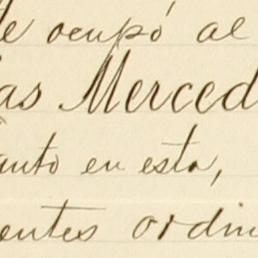 le ocupó al
as Merced
anto en esta,
entes ordin